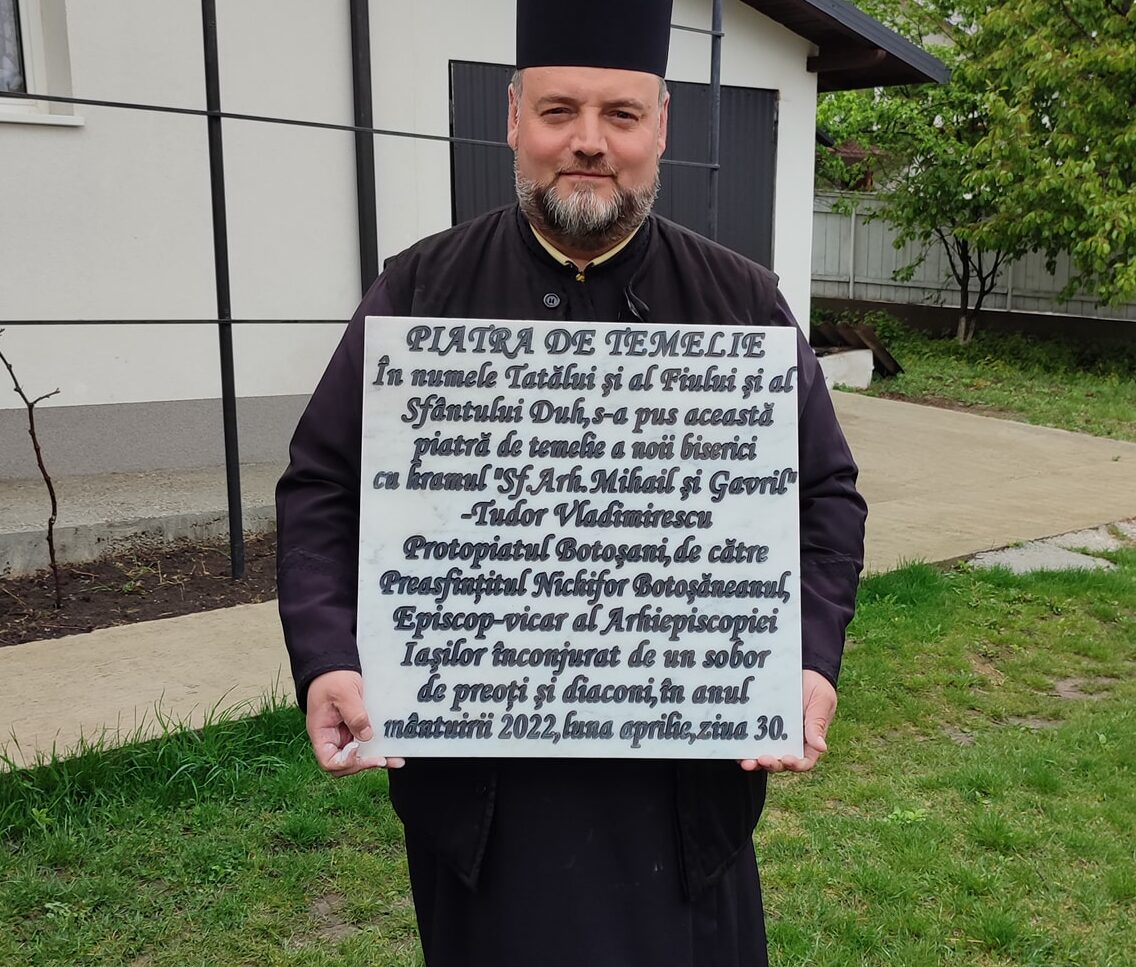 PIATRA DE TEMELIE
În numele Tatălui și al Fiului și al
Sfântului Duh,s-a pus această
piatră de temelie a noii biserici
cu hramul "Sf.Arh.Mihail și Gavril"
-Tudor Vladimirescu
Protopiatul Botoșani,de către
Preasfințitul Nichifor Botoșăneanul,
Episcop-vicar al Arhiepiscopiei
Iașilor înconjurat de un sobor
de preoți și diaconi,în anul
mântuirii 2022,luna aprilie,ziua 30.